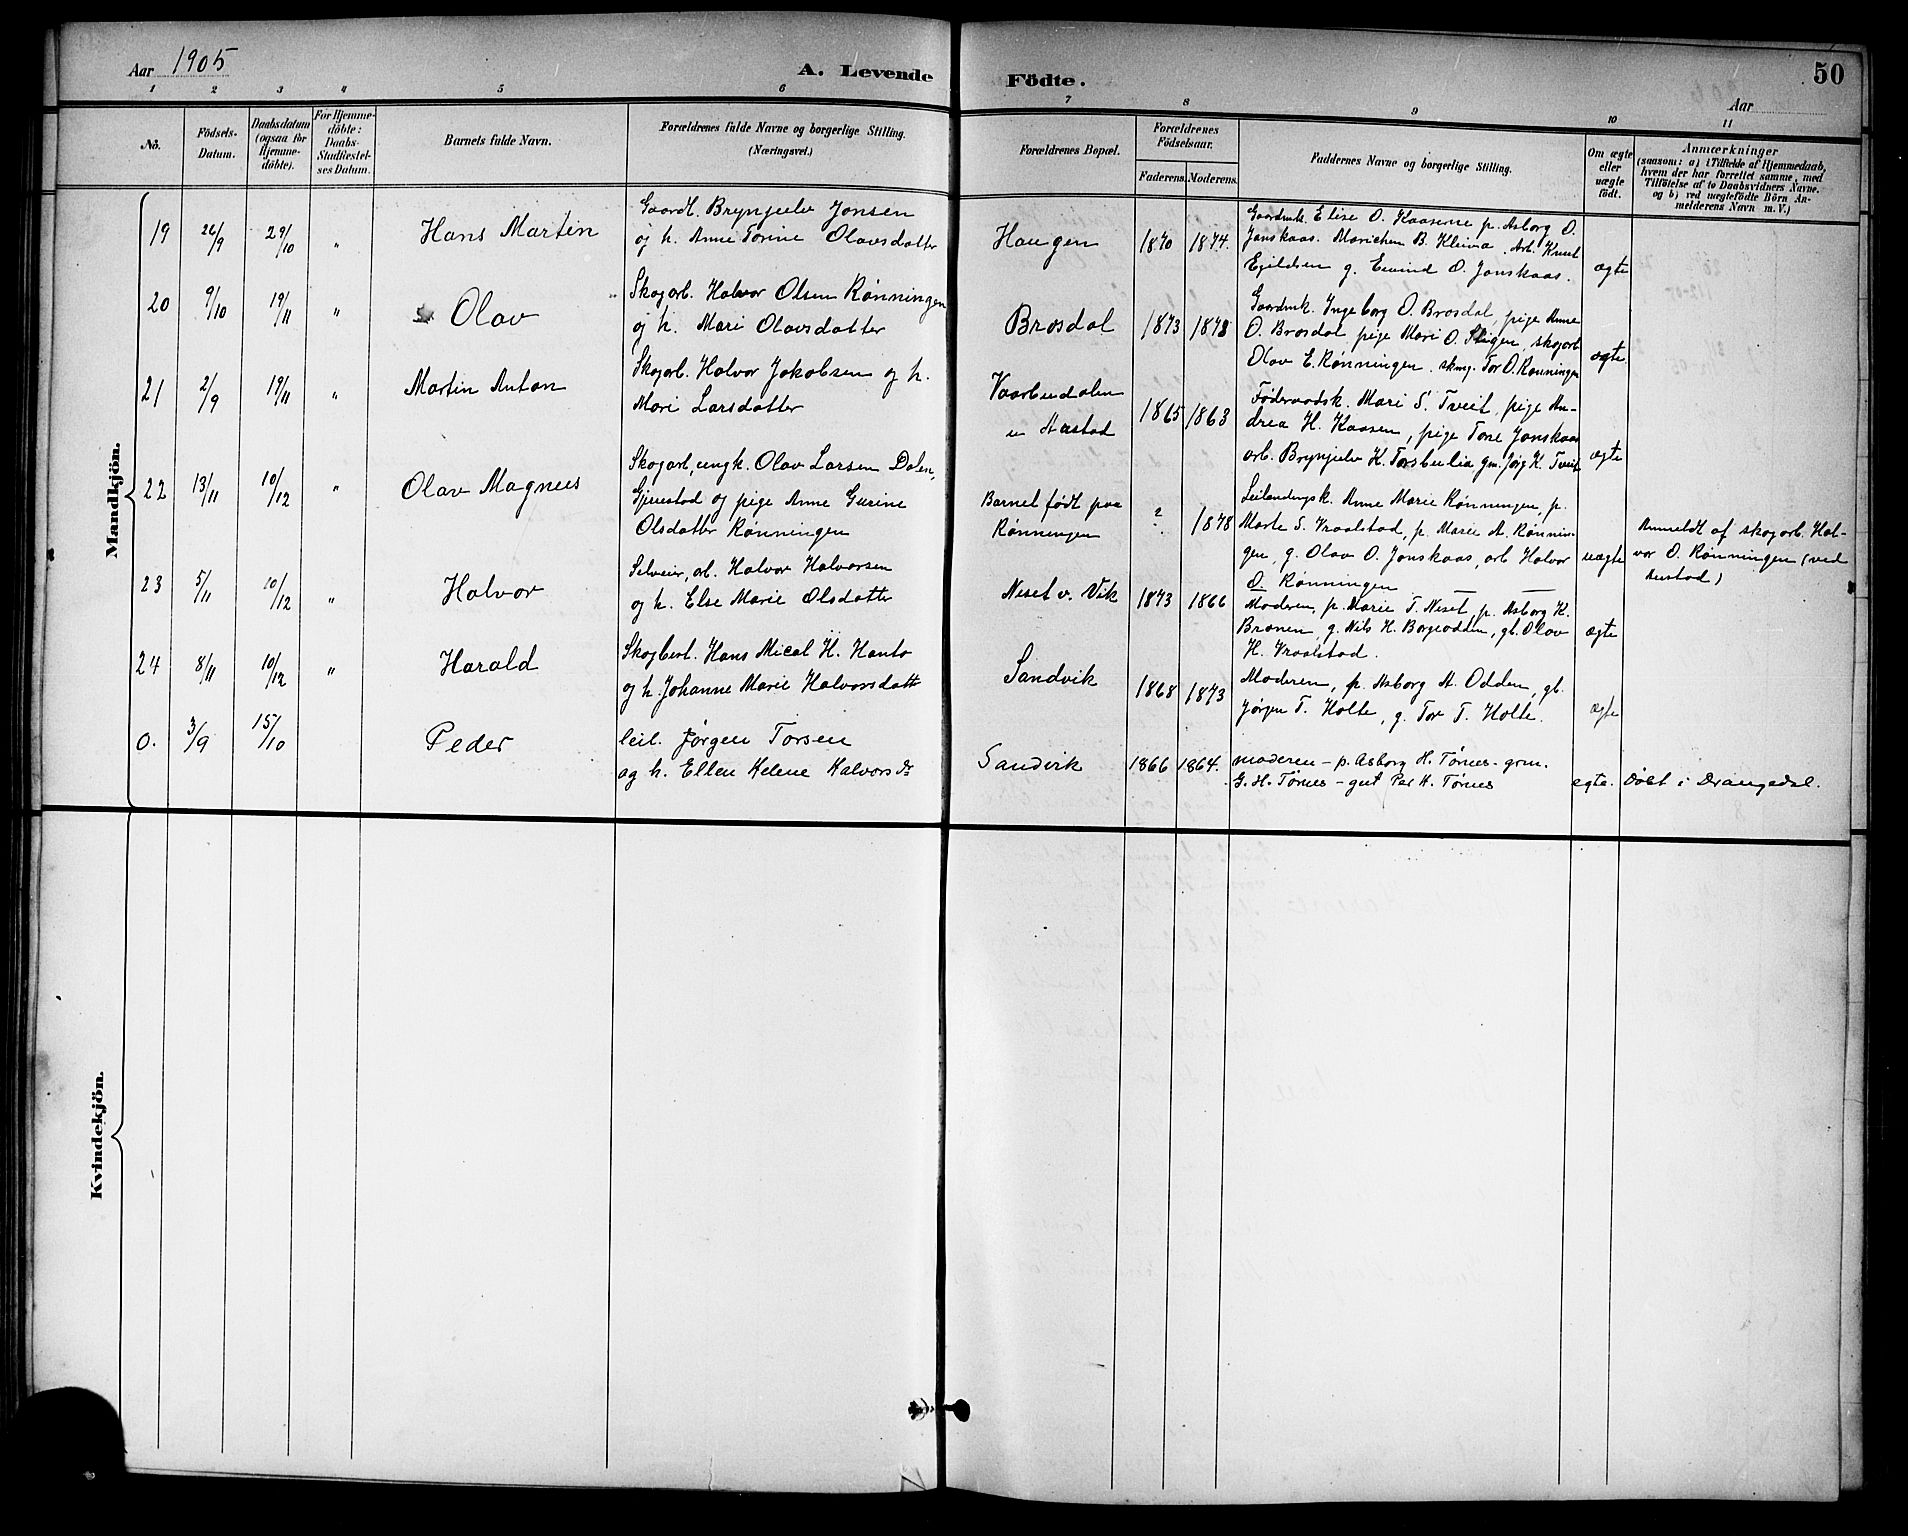 Aar 1905
A. Levende Födte.
50
Aar
1 2 3 4 5 6 7 8 9 10 11
No.
Födsels-Datum.
Daabsdatum (ogsaa for Hjemmedöbte).
For Hjemmedöbte: Daabs-Stadfæstelses Datum.
Barnets fulde Navn.
Forældrenes fulde Navne og borgerlige Stilling. (Næringsvei.)
Forældrenes Bopæl.
Forældrenes Födselsaar.
Faderens. Moderens.
Faddernes Navne og borgerlige Stilling.
Om ægte eller uægte födt.
Anmærkninger
(saasom: a) i Tilfælde af Hjemmedaab,
hvem der har forrettet samme, med
Tilföielse af to Daabsvidners Navne.
og b) ved uægtefödte Börn An-
melderens Navn m. V.)
Mandkjön.
19 26/9 29/10 " Hans Martin
Gaardt. Brynjulv Jonsen
og h. Anne Torine Olavsdatter
Haugen 1870 1874.
Gaardmk. Elise O. Kaasene p. Asborg O.
Jonskaas. Marichen B. Kleiva. Arb. Knut
Egildsen g. Eivind O. Jonskaas.
ægte
20 9/10 19/11 " Olav
Skogarb. Halvor Olsen Rønningen
og h. Mari Olavsdatter
Brosdal 1873 1878
Gaardmk. Ingeborg O. Brosdal, pige Anne
O. Brosdal pige Mari O. Stigen, skogarb
Olav E. Rønningen. skmg. Tor O. Rønningen
ægte
21 2/9 19/11 " Martin Anton
Skogarb. Halvor Jakobsen og h.
Mari Larsdatter
Vaarbudalen
u Austad
1865 1863
Føderaadsk. Mari S. Tveit, pige An-
drea H. Kaasen, pige Tone Jonskaas
arb. Brynjulv K. Torsbulia gm. Jørg K. Tveit
ægte
22 13/11 10/12 " Olav Magnus
Skogarb, ungk. Olav Larsen Dalen,
Gjerstad og pige Anne Gurine
Olsdatter Rønningen
Barnet født paa
Rønningen
? 1878
Leilendingsk. Anne Marie Rønningen, p.
Marte S. Vraalstad, p. Marie A. Rønnin-
gen, g. Olav O. Jonskaas, arb Halvor
O. Rønningen
uægte
Anmeldt af skogarb. Hal-
vor O. Rønningen (ved
Austad)
23 5/11 10/12 " Halvor
Selveier, arb. Halvor Halvorsen
og h. Else Marie Olsdatter
Neset v. Vik 1873 1866
Moderen, p. Marie T. Neset, p. Asborg K.
Brænen, g. Nils H. Borgeodden, gb. Olav
H. Vraalstad.
ægte
24 8/11 10/12 " Harald
Skogbest. Hans Mical H. Hanto
og h. Johanne Marie Halvorsdatt
Sandvik 1868 1873
Moderen, p. Asborg A. Odden, gb.
Jørgen T. Holte, g. Tor T. Holte.
ægte
0. 3/9 15/10 Peder
leil. Jørgen Torsen
og h. Ellen Helene Halvorsdr
Sandvik 1866 1864.
moderen – p. Asborg H. Tørnes – grm.
G. H. Tørnes – gut Per H. Tørnes
egte. Døbt i Drangedal.
Kvindekjön.